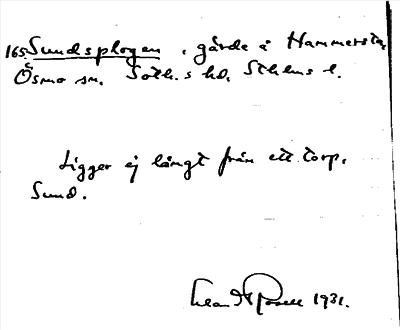 165. Sundsplogen, gärde å Hammersta,
Ösmo sn. Soth.s hd. Sthlms l.
Ligger ej långt från ett torp.
Sund.
1931.